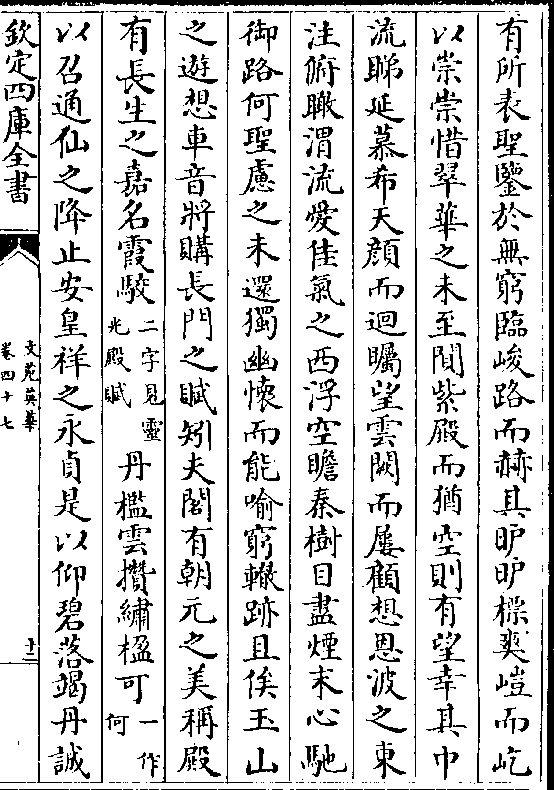 有所表聖鑒於無窮臨峻路而赫其昈昈標爽塏而屹
以崇崇惜翠華之未至閒紫殿而猶空則有望幸其中
流睇延慕希天顔而迴矚望雲闕而屢顧想恩波之東
注俯瞰渭流愛佳氣之西浮空瞻秦樹目盡煙末心馳
御路何聖慮之未還獨幽懷而能喻窮轍跡且俟玉山
之遊想車音將購長門之賦矧夫閣有朝元之美稱殿
有長生之嘉名霞駮二字見靈光殿賦丹檻雲攢繡楹可一作何
以召通仙之降止安皇祥之永貞是以仰碧落竭丹誠
欽定四庫全書
文苑英華
卷四十七
十二